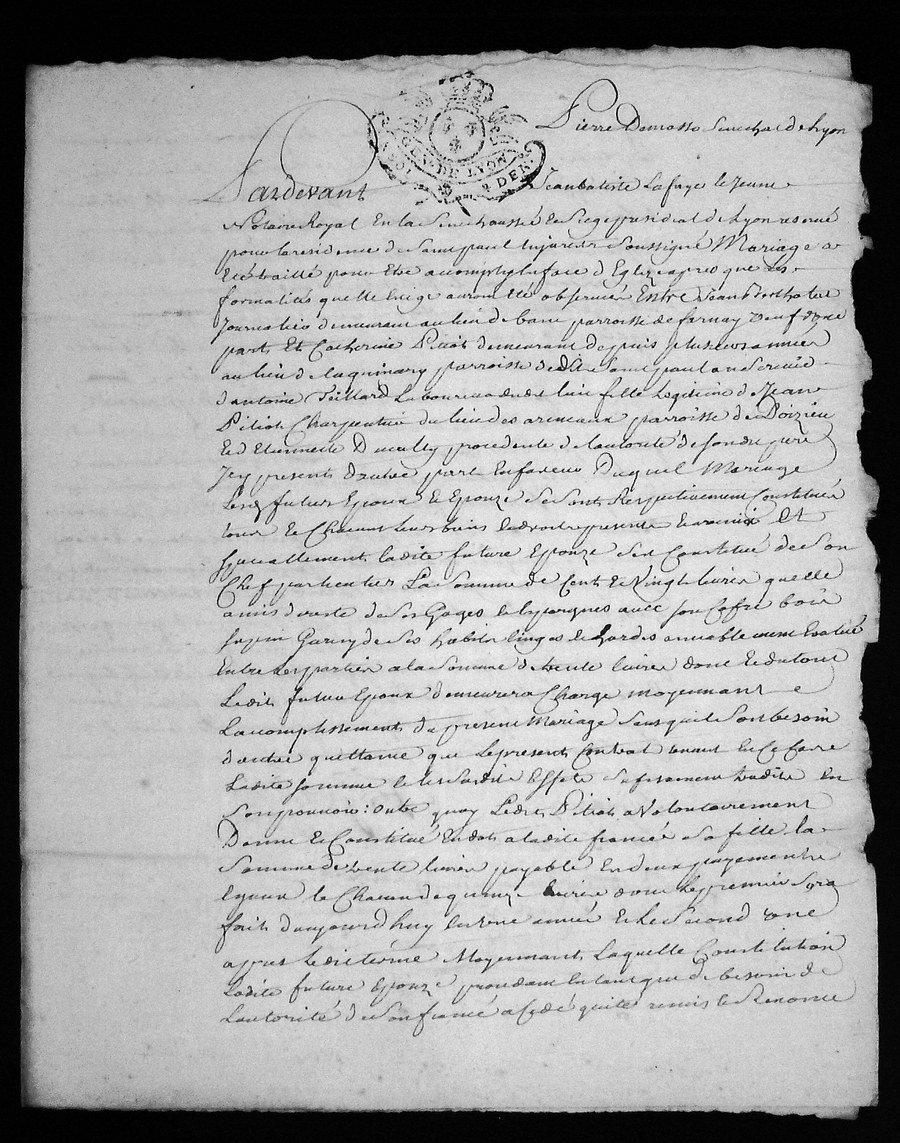 GEN. DE LYON
2 DEN.
Pierre Demasso Senechal de Lyon
Pardevant Jeanbatiste Lafaye le Jeune
Notaire Royal En la Senechaussé Et Siege presidial de Lyon reservé
pour la residence de Saint paul En Jarest Soussigné Mariage a
Eté traitté pour Etre acomply En face d'Eglize apres que les
formalités quelle Exige auront été observées Entre Jean
Journalier demeurant au lieu de parroisse de farnay veuf d'une
part, Et Catherine Pitiot demeurant depuis plusieurs années
au lieu de parroisse dedit Saint paul au Service
d'antoine Teillard Laboureur dudit lieu fille Legitime d'Jean
Pitiot Charpentier du lieu des parroisse de Doizieu
Et d'Etiennette procedente de l'autorité de sondit pere
Icy present, d'autre part, En faveur Duquel Mariage
Lesd. futurs Epoux Et Epouze Se sont Respectivement Constitués
tous Et Chacuns leurs biens Et droits presents Et avenir Et
speciallement ladite future Epouze Sest Constitué de Son
Chef particulier La Somme de Cent Et Vingt livres quelle
a mis d'reste de Ses Gages Et Epargnes avec son Coffre bois
sapin Garny de Ses habits linges Et hardes amiablement Evalué
Entre les parties a la Somme de trente livres dont Et du tout
Ledit futur Epoux demeurera Chargé moyennant
L'acomplissement du present Mariage Sans quil Soit besoin
d'autre quittance que le present, Contrat
Ladite somme Et lesdits Effets
Son pouvoir : outre quoy Ledit Pitiot a Volontairement
Donné Et Constitué En dot, a ladite fiancée Sa fille la
Somme de trente livres payable En deux payements
Egaux de Chacun de quinze livres dont le premier Sera
fait d'aujourd'huy En une année Et le Second une
apres ledit terme Moyennant, Laquelle Constitution
Ladite future Epouze procedant En tant que de besoin de
L'autorité de Son fiancé a Cedé quité remis Et Renoncé